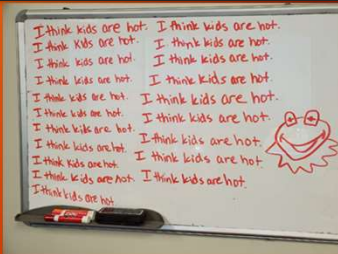 I think kids are hot.
I think Kids are hot.
I think kids are hot.
I think kids are hot.
I think kids are hot.
I think kids are hot.
I think kids are hot.
I think kids are hot.
I think kids are hot.
I think kids are hot.
I think kids are hot
I think kids are hot.
I think kids are hot.
I think kids are hot.
I think kids are hot.
I think kids are hot.
I think kids are hot.
I think kids are hot.
I think kids are hot.
I think kids are hot.